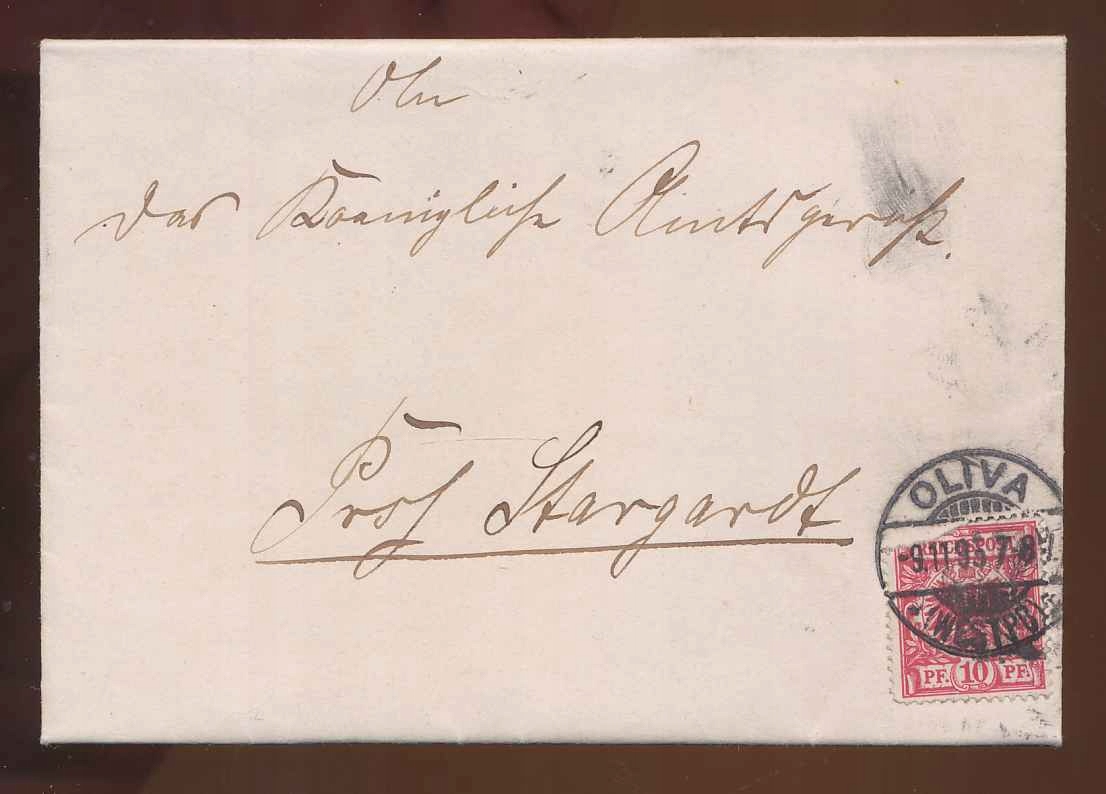 An
das Koenigliche Amtsgericht.
Prss Stargardt
OLIVA
-9.11.95.7-8
(WESTPR)
PF. 10 PF.